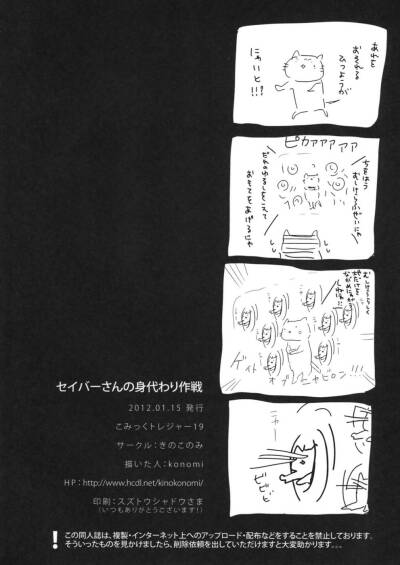 あれを
おそれる
ひつようが
にゃいと!!?
ピカァァァァァ
ちをはう
むしけらふぜいにゃ
だれのゆるしをえて
おもてをあげるにゃ
むしけらはむしけららしく
地だけを
ながめにゃがら
しねぃ!!
ゲイト
オブ
ニャビロン!!!
ビビビ
セイバーさんの身代わり作戦
2012.01.15 発行
こみっくトレジャー19
サークル:きのこのみ
描いた人:konomi
HP:http://www.hcdl.net/kinokonomi/
印刷:スズトウシャドウさま
(いつもありがとうございます!)
! この同人誌は、複製・インターネット上へのアップロード・配布などをすることを禁止しております。
そういったものを見かけましたら、削除依頼を出していただけますと大変助かります。、、